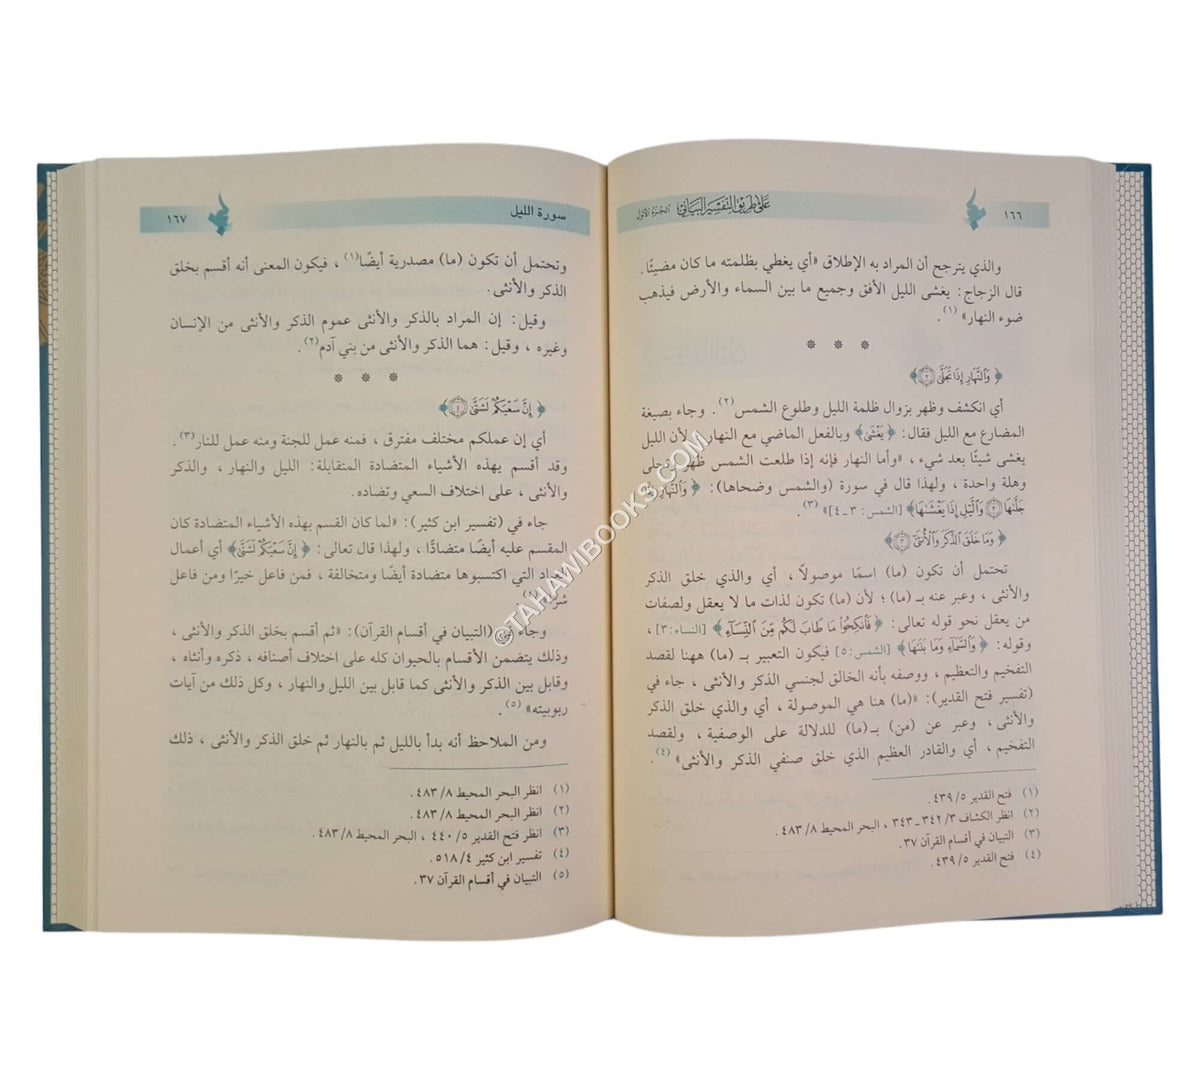 ١٦٦
على طريق التفسير البياني
الجزء الأول
والذي يترجح أن المراد به الإطلاق «أي يغطي بظلمته ما كان مضيئًا.
قال الزجاج: يغشى الليل الأفق وجميع ما بين السماء والأرض فيذهب
ضوء النهار» (١).
* * *
﴿ وَٱلنَّهَارِ إِذَا تَجَلَّىٰ ٢ ﴾
أي انكشف وظهر بزوال ظلمة الليل وطلوع الشمس(٢). وجاء بصيغة
المضارع مع الليل فقال: ﴿ يَغْشَىٰ ﴾ وبالفعل الماضي مع النهار، لأن الليل
يغشى شيئًا بعد شيء، «وأما النهار فإنه إذا طلعت الشمس ظهر وتجلى
وهلة واحدة، ولهذا قال في سورة (والشمس وضحاها): ﴿ وَٱلنَّهَارِ إِذَا
جَلَّىٰهَا ٣ وَٱلَّيْلِ إِذَا يَغْشَىٰهَا ﴾ [الشمس: ٣ـ٤]» (٣).
﴿ وَمَا خَلَقَ ٱلذَّكَرَ وَٱلْأُنثَىٰٓ ٣ ﴾
تحتمل أن تكون (ما) اسمًا موصولاً، أي والذي خلق الذكر
والأنثى، وعبر عنه بـ (ما)؛ لأن (ما) تكون لذات ما لا يعقل ولصفات
من يعقل نحو قوله تعالى: ﴿ فَٱنكِحُوا۟ مَا طَابَ لَكُم مِّنَ ٱلنِّسَآءِ ﴾ [النساء: ٣]،
وقوله: ﴿ وَٱلسَّمَآءِ وَمَا بَنَىٰهَا ﴾ [الشمس: ٥] فيكون التعبير بـ (ما) ههنا لقصد
التفخيم والتعظيم، ووصفه بأنه الخالق لجنسي الذكر والأنثى، جاء في
(تفسير فتح القدير): «(ما) هنا هي الموصولة، أي والذي خلق الذكر
والأنثى، وعبر عن (من) بـ (ما) للدلالة على الوصفية، ولقصد
التفخيم، أي والقادر العظيم الذي خلق صنفي الذكر والأنثى» (٤).
(١) فتح القدير ٥/ ٤٣٩.
(٢) انظر الكشاف ٣/ ٣٤٢ ـ ٣٤٣، البحر المحيط ٨/ ٤٨٣.
(٣) التبيان في أقسام القرآن ٣٧.
(٤) فتح القدير ٥/ ٤٣٩.
سورة الليل
١٦٧
وتحتمل أن تكون (ما) مصدرية أيضًا(١)، فيكون المعنى أنه أقسم بخلق
الذكر والأنثى.
وقيل: إن المراد بالذكر والأنثى عموم الذكر والأنثى من الإنسان
وغيره، وقيل: هما الذكر والأنثى من بني آدم(٢).
* * *
﴿ إِنَّ سَعْيَكُمْ لَشَتَّىٰ ٤ ﴾
أي إن عملكم مختلف مفترق، فمنه عمل للجنة ومنه عمل للنار(٣).
وقد أقسم بهذه الأشياء المتضادة المتقابلة: الليل والنهار، والذكر
والأنثى، على اختلاف السعي وتضاده.
جاء في (تفسير ابن كثير): «لما كان القسم بهذه الأشياء المتضادة كان
المقسم عليه أيضًا متضادًّا، ولهذا قال تعالى: ﴿ إِنَّ سَعْيَكُمْ لَشَتَّىٰ ﴾ أي أعمال
العباد التي اكتسبوها متضادة أيضًا ومتخالفة، فمن فاعل خيرًا ومن فاعل
شرًّا»
وجاء في (التبيان في أقسام القرآن): «ثم أقسم بخلق الذكر والأنثى،
وذلك يتضمن الأقسام بالحيوان كله على اختلاف أصنافه، ذكره وأنثاه،
وقابل بين الذكر والأنثى كما قابل بين الليل والنهار، وكل ذلك من آيات
ربوبيته» (٥).
ومن الملاحظ أنه بدأ بالليل ثم بالنهار ثم خلق الذكر والأنثى، ذلك
(١) انظر البحر المحيط ٨/ ٤٨٣.
(٢) انظر البحر المحيط ٨/ ٤٨٣.
(٣) انظر فتح القدير ٥/ ٤٤٠، البحر المحيط ٨/ ٤٨٣.
(٤) تفسير ابن كثير ٤/ ٥١٨.
(٥) التبيان في أقسام القرآن ٣٧.
©TAHAWIBOOKS.COM